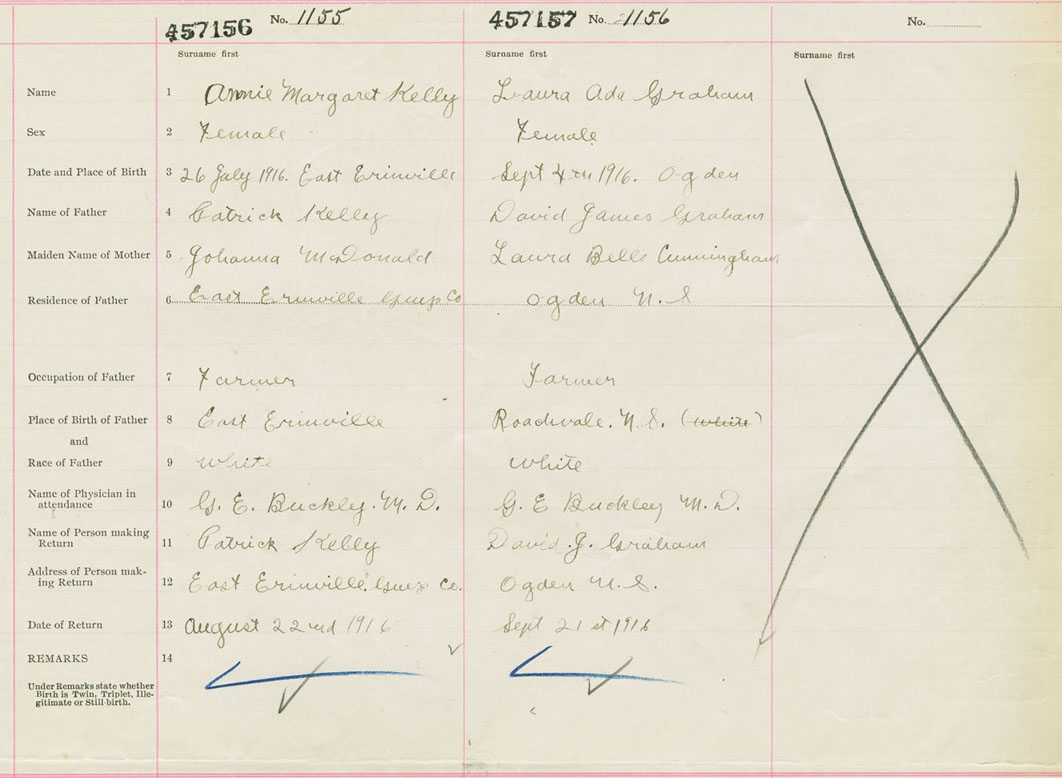 457156 No. 1155 457157 No. 1156 No.
Surname first Surname first Surname first
Name 1 Annie Margaret Kelly Laura Ada Graham
Sex 2 Female Female
Date and Place of Birth 3 26 July 1916. East Erinville Sept 4th 1916. Ogden
Name of Father 4 Patrick Kelly David James Graham
Maiden Name of Mother 5 Johanna McDonald Laura Belle Cunningham
Residence of Father 6 East Erinville Guys Co Ogden N.S
Occupation of Father 7 Farmer Farmer
Place of Birth of Father 8 East Erinville Roachvale. N.S. (White)
and
Race of Father 9 White White
Name of Physician in
attendance 10 G. E. Buckley. M.D. G. E Buckley M.D.
Name of Person making
Return 11 Patrick Kelly David. J. Graham
Address of Person mak-
ing Return 12 East Erinville. Guys Co. Ogden N.S.
Date of Return 13 August 22nd 1916 Sept 21st 1916
REMARKS 14
Under Remarks state whether
Birth is Twin, Triplet, Ille-
gitimate or Still-birth.